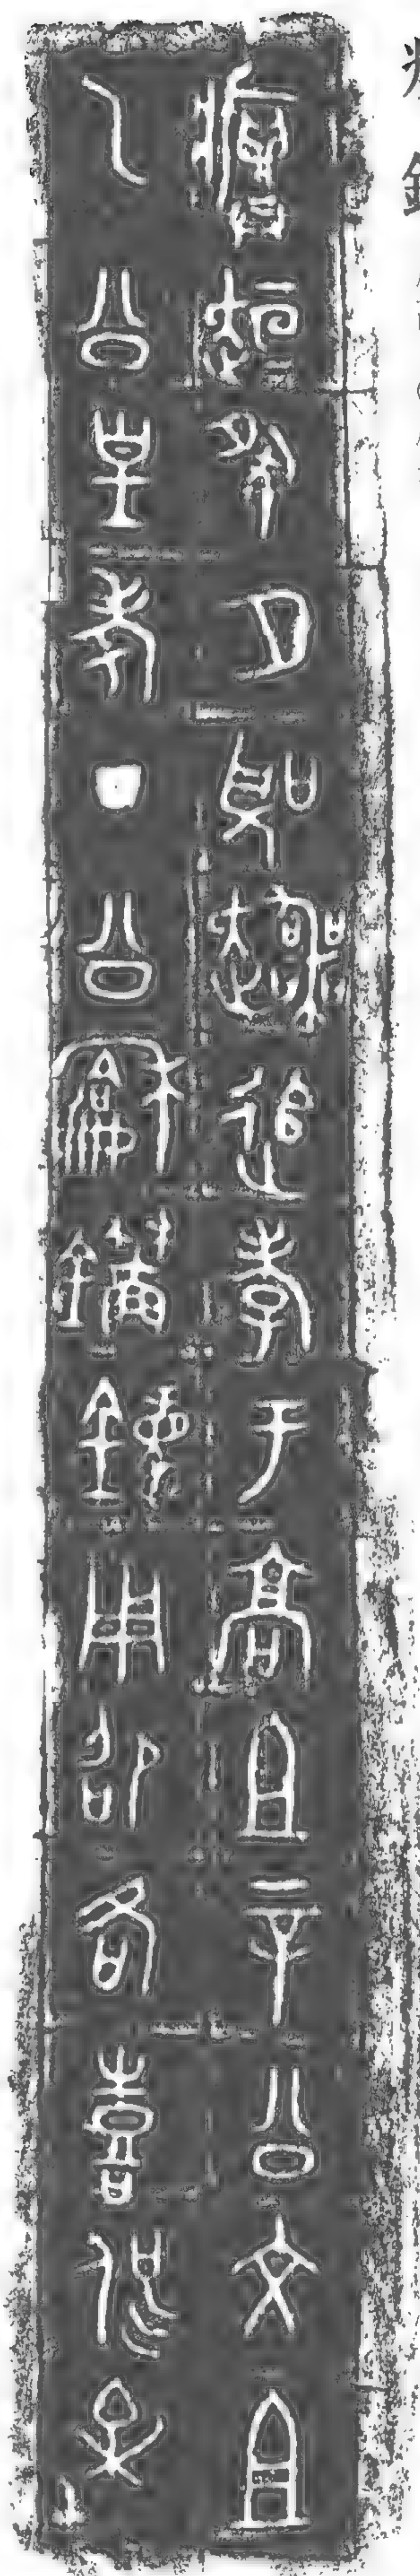 𤼈趄=夙夕聖趩追孝于高且辛公文且
乙公皇考丁公龢鐘用卲各喜侃樂